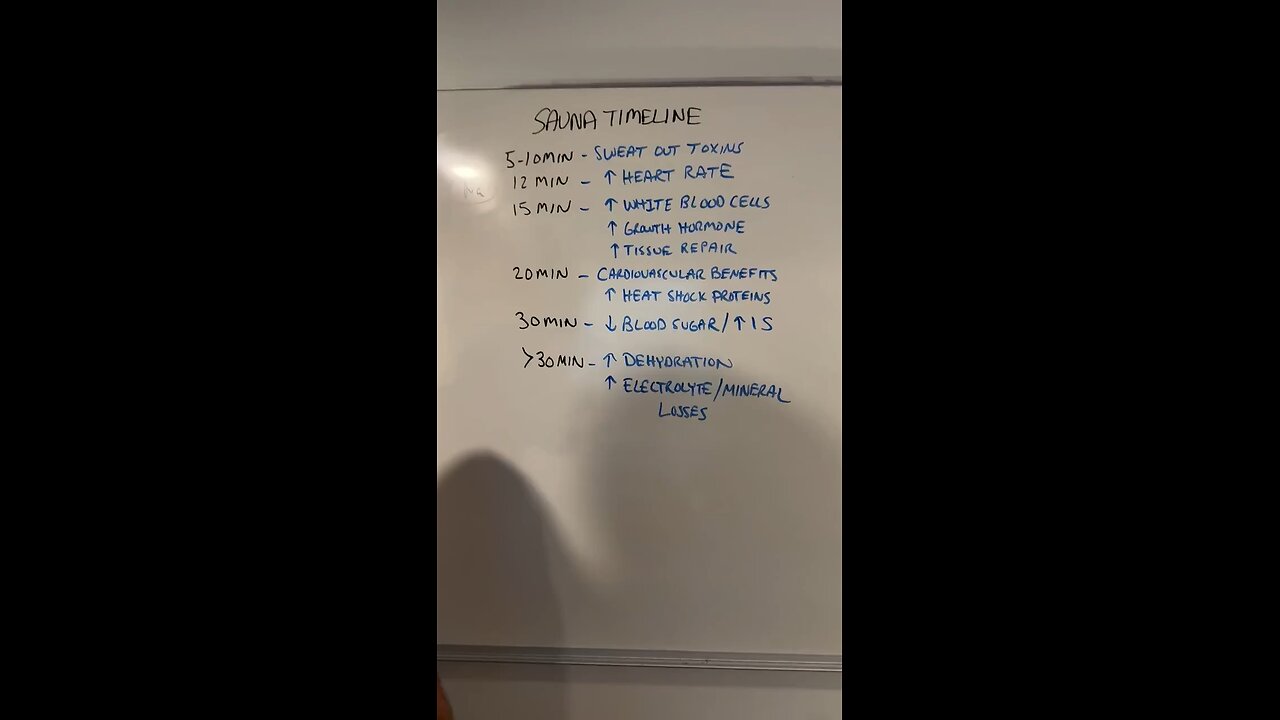 SAUNA TIMELINE
5-10MIN - SWEAT OUT TOXINS
12 MIN - ↑ HEART RATE
15 MIN - ↑ WHITE BLOOD CELLS
↑ GROWTH HORMONE
↑ TISSUE REPAIR
20MIN - CARDIOVASCULAR BENEFITS
↑ HEAT SHOCK PROTEINS
30MIN - ↓ BLOOD SUGAR/↑ IS
>30MIN - ↑ DEHYDRATION
↑ ELECTROLYTE/MINERAL
LOSSES